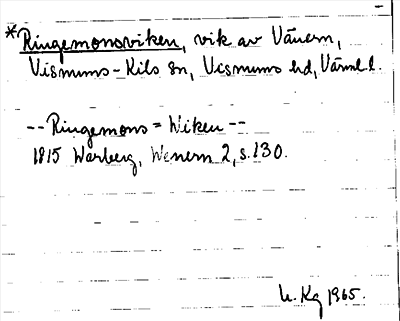 *Ringemonsviken, vik av Vänern,
Visnums-Kils sn, Visnums hd, Värml. l.
-- Ringemons = Wiken --
1815 Warberg, Wenern 2, s. 130.
U. Kg 1965.